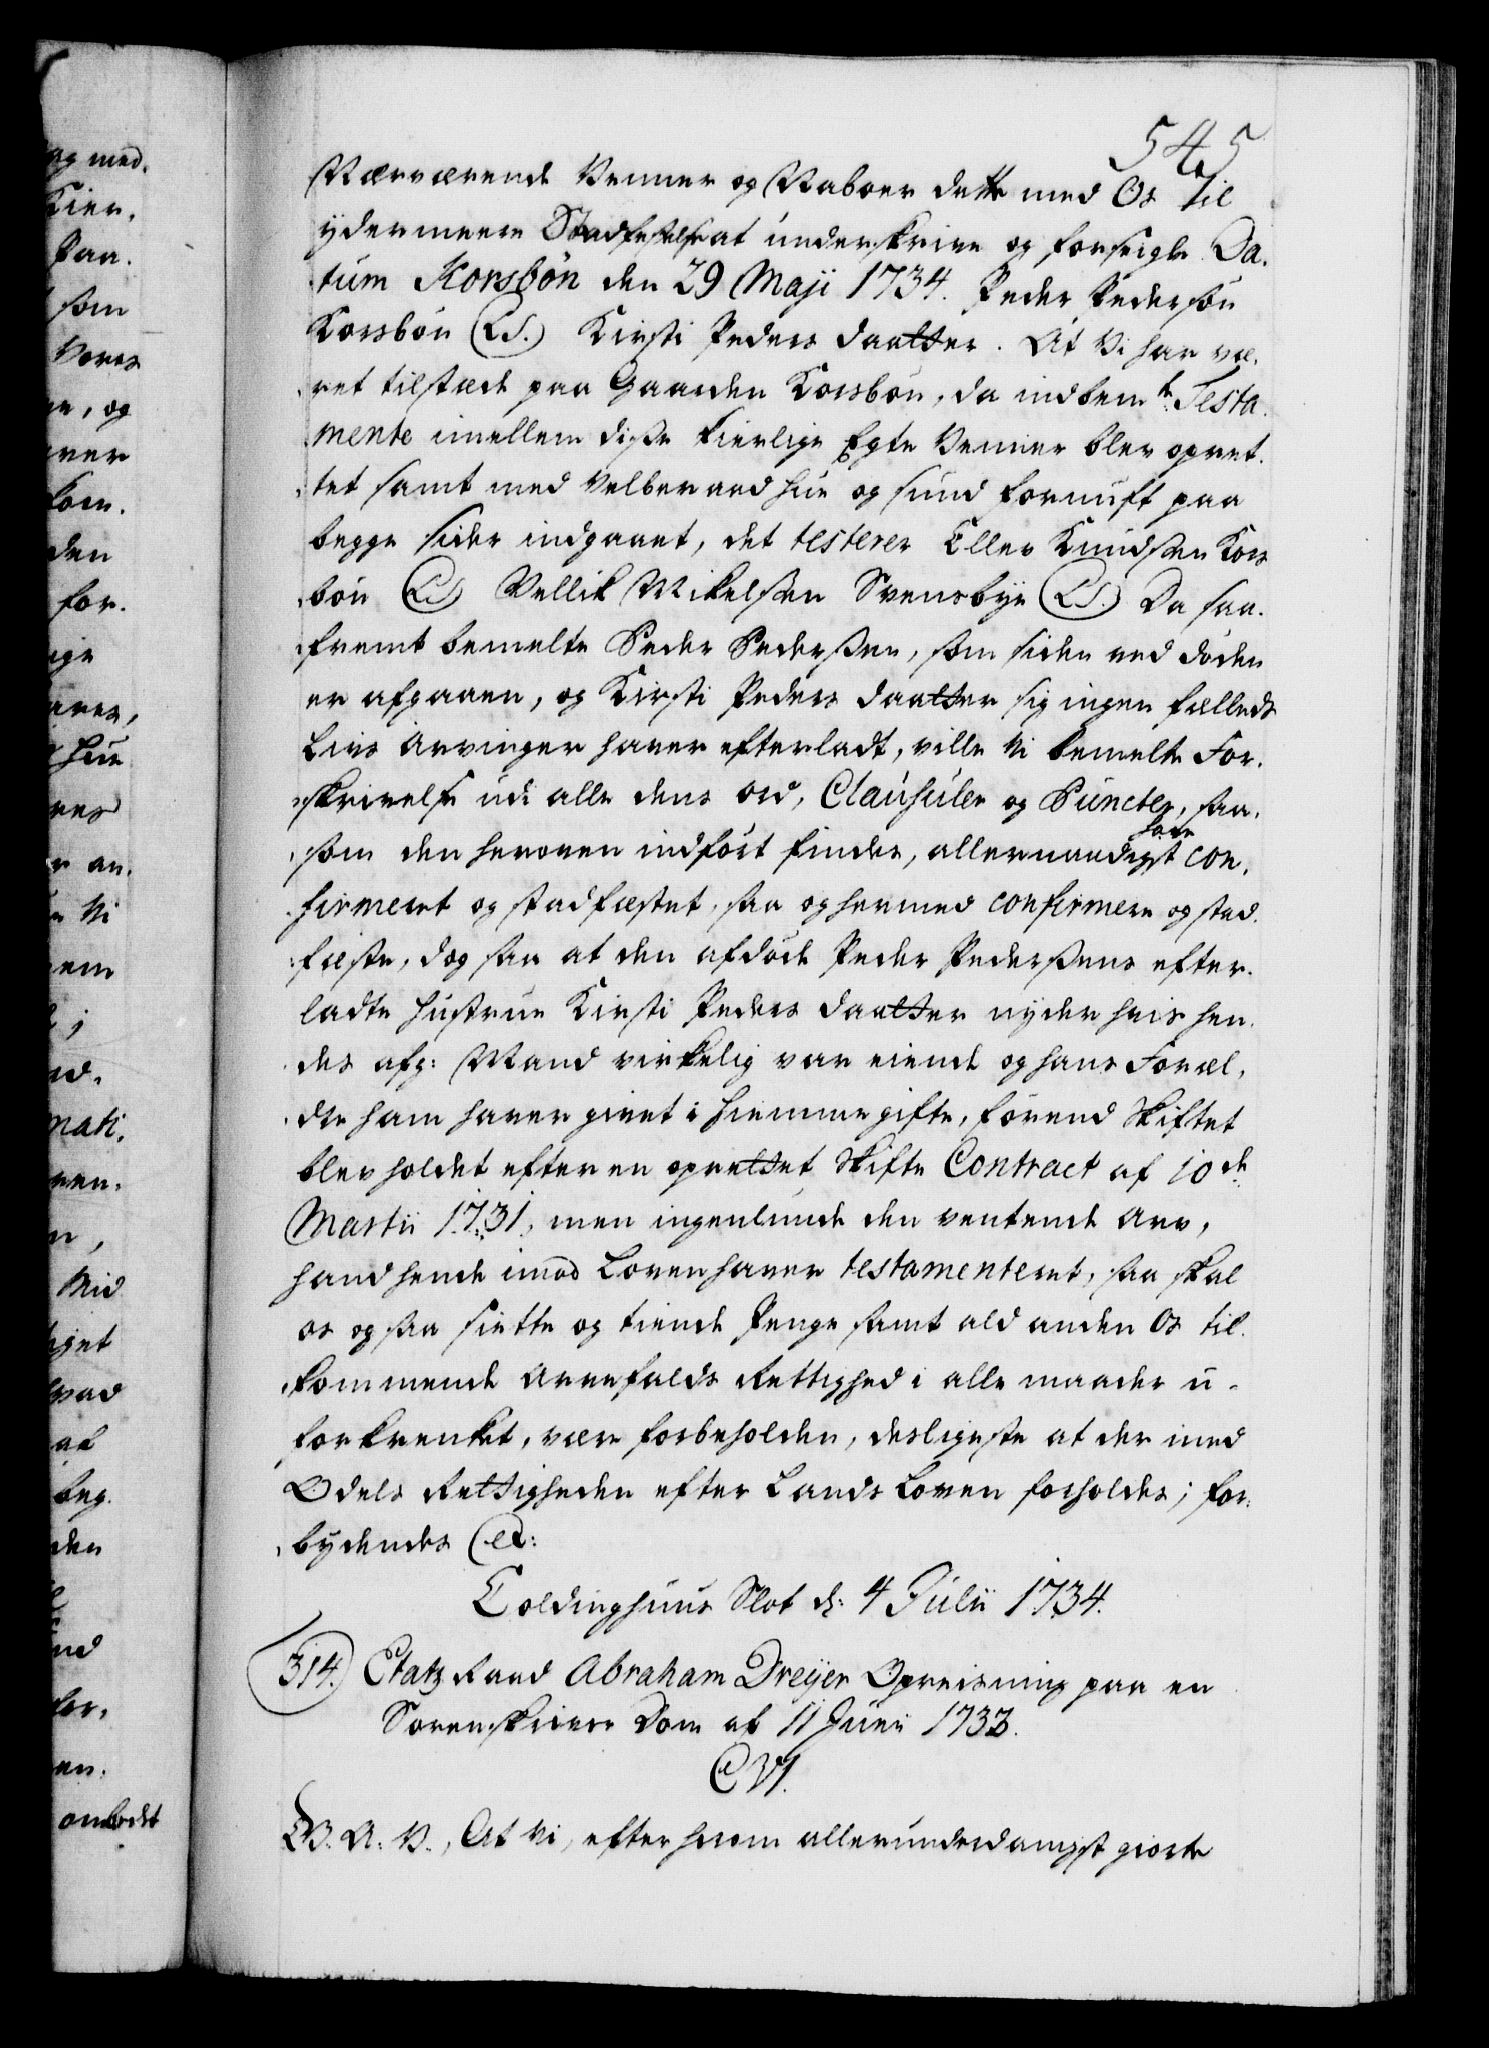 545
Nærværende Venner og Naboer dette med Os til
ydermeere Stadfestelse at underskrive og forseigle Da-
tum Korsbön den 29 Maji 1734. Peder Pedersøn
Korsbön (LS.) Kirsti Peders Daatter. At Vi har væ-
ret tilstæde paa Gaarden Korsbön, da indbem.te Testa-
mente imellem disse kierlige Egte Venner blev opret-
tet samt med velberaad hue og sund fornuft paa
begge sider indgaaet, det testerer Ellev Knudssen Kors
bön (LS) Vellik Mikelssen Svensbye (LS.) Da saa-
fremt bemelte Peder Pederssen, som siden ved døden
er afgaaen, og Kirsti Peders Daatter sig ingen fælleds
Livs Arvinger haver efterladt, ville Vi bemelte For-
skrivelse udi alle dens ord, Clausuler og Puncter, saa-
som den heroven indført findes, allernaadigst have con-
firmeret og stadfæstet, saa og hermed confirmere og stad-
fæste, dog saa at den afdøde Peder Pederssens efter-
ladte Hustrue Kirsti Peders Daatter nyder hvis hen-
des afg: Mand virkelig var eiende og hans Foræl-
dre ham haver givet i Hiemmegifte, førend Skiftet
blev holdet efter en oprettet Skifte Contract af 10de
Martii 1731, men ingenlunde den ventende Arv,
hand hende imod Loven haver testamenteret, saa skal
os og saa siette og tiende Penge samt ald anden Os til-
kommende Arvefalds Rettighed i alle maader u-
forkrenket, være forbeholden, desligeste at der med
Odels Rettigheden efter Lands Loven forholdes; for-
bydendes etc:
Coldinghuus Slot d: 4 Julii 1734.
314. Etatz Raad Abraham Dreyer Opreisning paa en
Sorenskriver Dom af 11 Junii 1733.
C VI.
G. A. V., At Vi, efter herom allerunderdanigst giorte